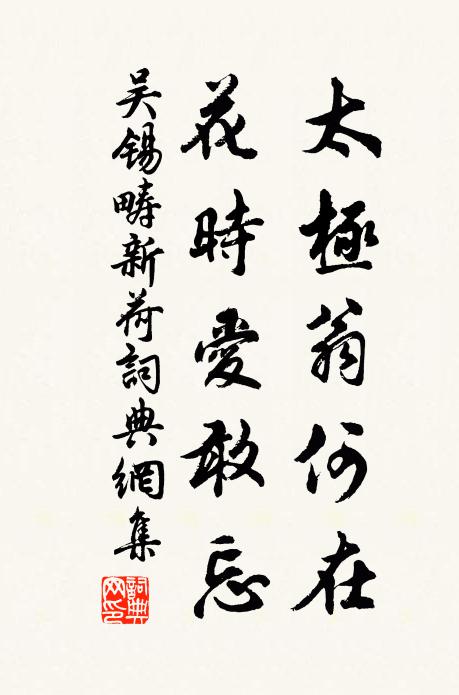 太極翁何在
花時愛敢忘
吴錫疇新荷詞典網集
詞典网印